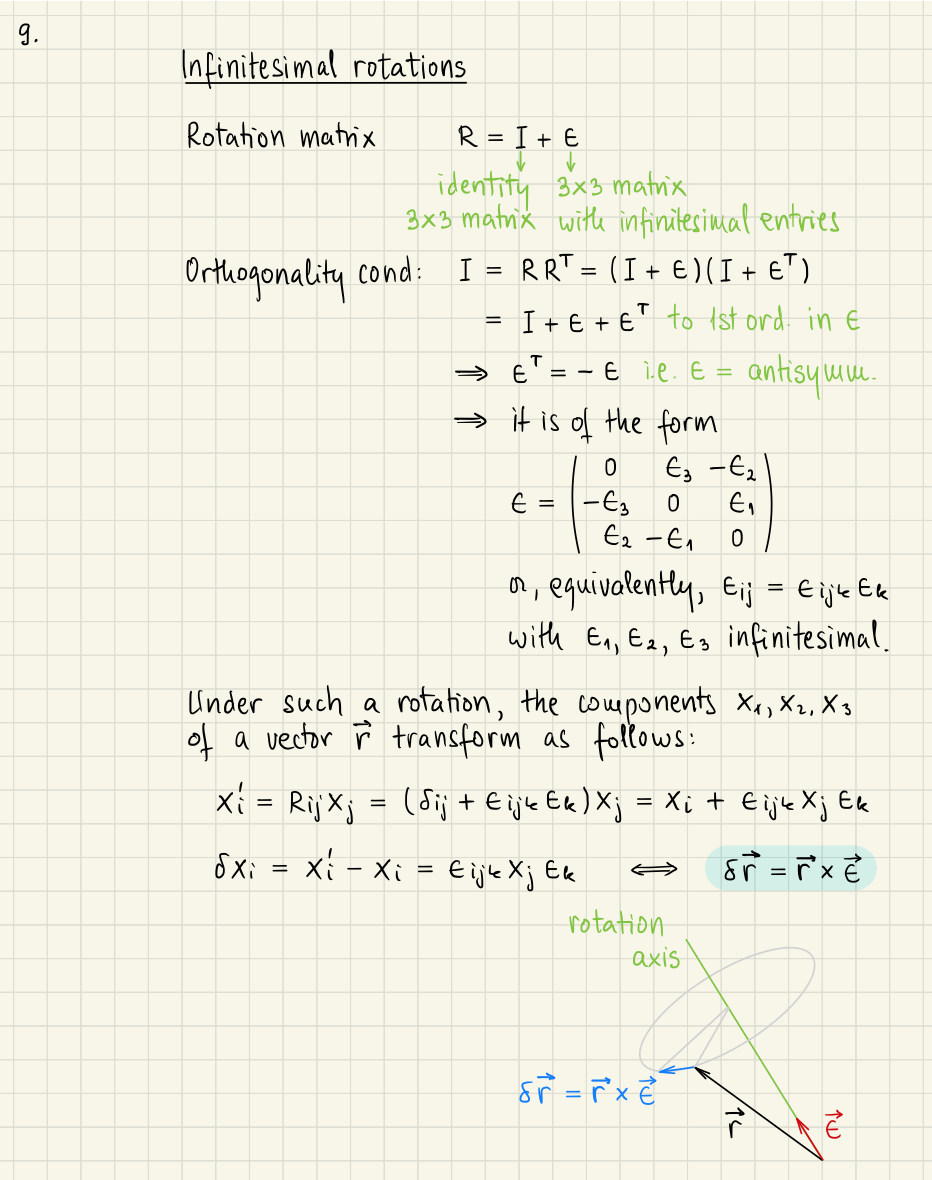 9.
Infinitesimal rotations
Rotation matrix R = I + ϵ
identity 3×3 matrix
3×3 matrix with infinitesimal entries
Orthogonality cond: I = R Rᵀ = (I + ϵ)(I + ϵᵀ)
= I + ϵ + ϵᵀ to 1st ord. in ϵ
⟹ ϵᵀ = − ϵ i.e. ϵ = antisymm.
⟹ it is of the form
0 ϵ₃ −ϵ₂
ϵ = −ϵ₃ 0 ϵ₁
ϵ₂ −ϵ₁ 0
or, equivalently, ϵij = ϵijk ϵk
with ϵ₁, ϵ₂, ϵ₃ infinitesimal.
Under such a rotation, the components x₁, x₂, x₃
of a vector r⃗ transform as follows:
xi′ = Rij xj = (δij + ϵijk ϵk) xj = xi + ϵijk xj ϵk
δxi = xi′ − xi = ϵijk xj ϵk ⟺ δr⃗ = r⃗ × ϵ⃗
rotation
axis
δr⃗ = r⃗ × ϵ⃗
r⃗
ϵ⃗